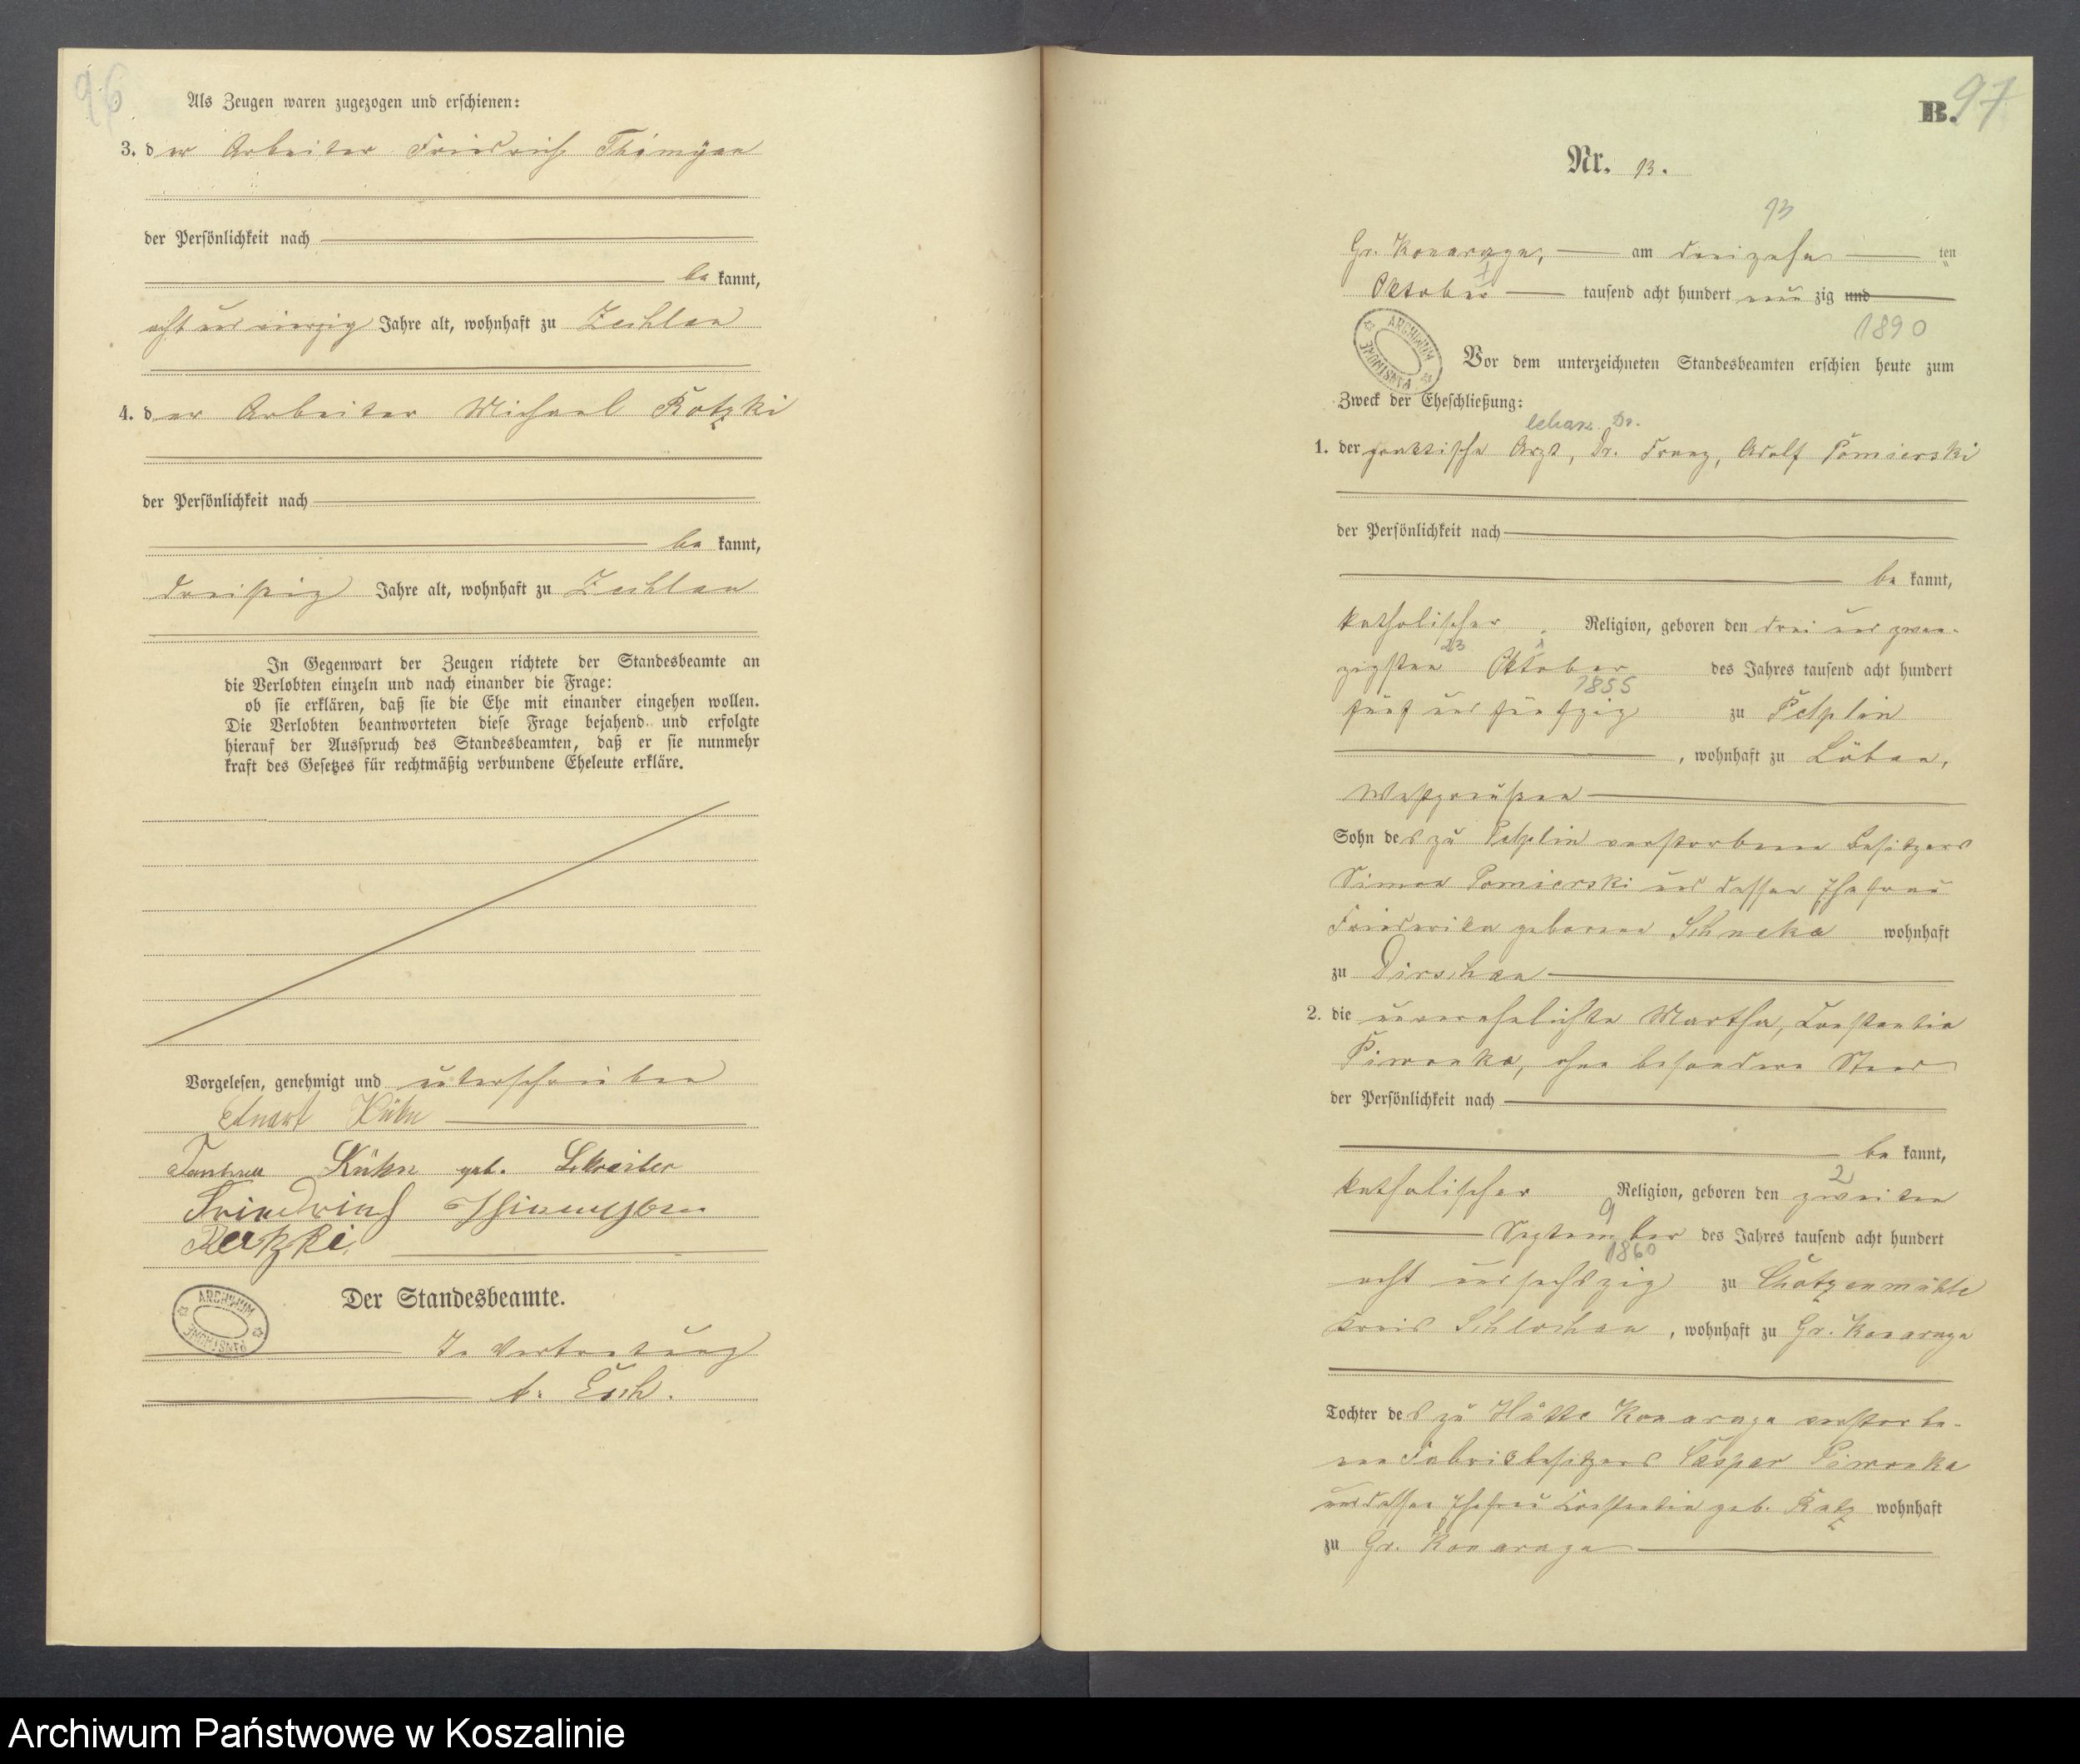 96
Als Zeugen waren zugezogen und erschienen:
3. der Arbeiter Friedrich Thimyan
der Persönlichkeit nach
be kannt,
acht und vierzig Jahre alt, wohnhaft zu Zechlau
4. der Arbeiter Michael Rotzki
der Persönlichkeit nach
be kannt,
dreißig Jahre alt, wohnhaft zu Zechlau
In Gegenwart der Zeugen richtete der Standesbeamte an
die Verlobten einzeln und nach einander die Frage:
ob sie erklären, daß sie die Ehe mit einander eingehen wollen.
Die Verlobten beantworteten diese Frage bejahend und erfolgte
hierauf der Ausspruch des Standesbeamten, daß er sie nunmehr
kraft des Gesetzes für rechtmäßig verbundene Eheleute erkläre.
Vorgelesen, genehmigt und unterschrieben
Eduard Kühn
Kühn geb. Schreiber
Friedrich
Der Standesbeamte.
ARCHIWUM PAŃSTWOWE
In Vertretung
Esch.
B. 97
Nr. 13.
13
Gr. Konarzyn, am dreizehn ten
Oktober tausend acht hundert neun zig und
1890
ARCHIWUM PAŃSTWOWE
Vor dem unterzeichneten Standesbeamten erschien heute zum
Zweck der Eheschließung:
lekarz Dr.
1. der praktische Arzt, Dr. Franz, Adolf Pomierski
der Persönlichkeit nach
be kannt,
katholischer Religion, geboren den drei und zwan-
23
zigsten Oktober des Jahres tausend acht hundert
1855
fünf und fünfzig zu Pelplin
, wohnhaft zu Löbau,
Westpreußen
Sohn des zu Pelplin verstorbenen Besitzers
Simon Pomierski und dessen Ehefrau
Friederike geborene wohnhaft
zu Dirschau
2. die unverehelichte Martha, Constantia
Piwonka, ohne besonderen Stand
der Persönlichkeit nach
be kannt,
2
katholischer Religion, geboren den zweiten
9
September des Jahres tausend acht hundert
1860
acht und sechszig zu Chotzenmühle
Kreis Schlochau, wohnhaft zu Gr. Konarzyn
Tochter des zu Hütte Konarzyn verstorbe-
nen Fabrikbesitzers Caspar Piwonka
und dessen Ehefrau Constantia geb. Ratz wohnhaft
zu Gr. Konarzyn
Archiwum Państwowe w Koszalinie